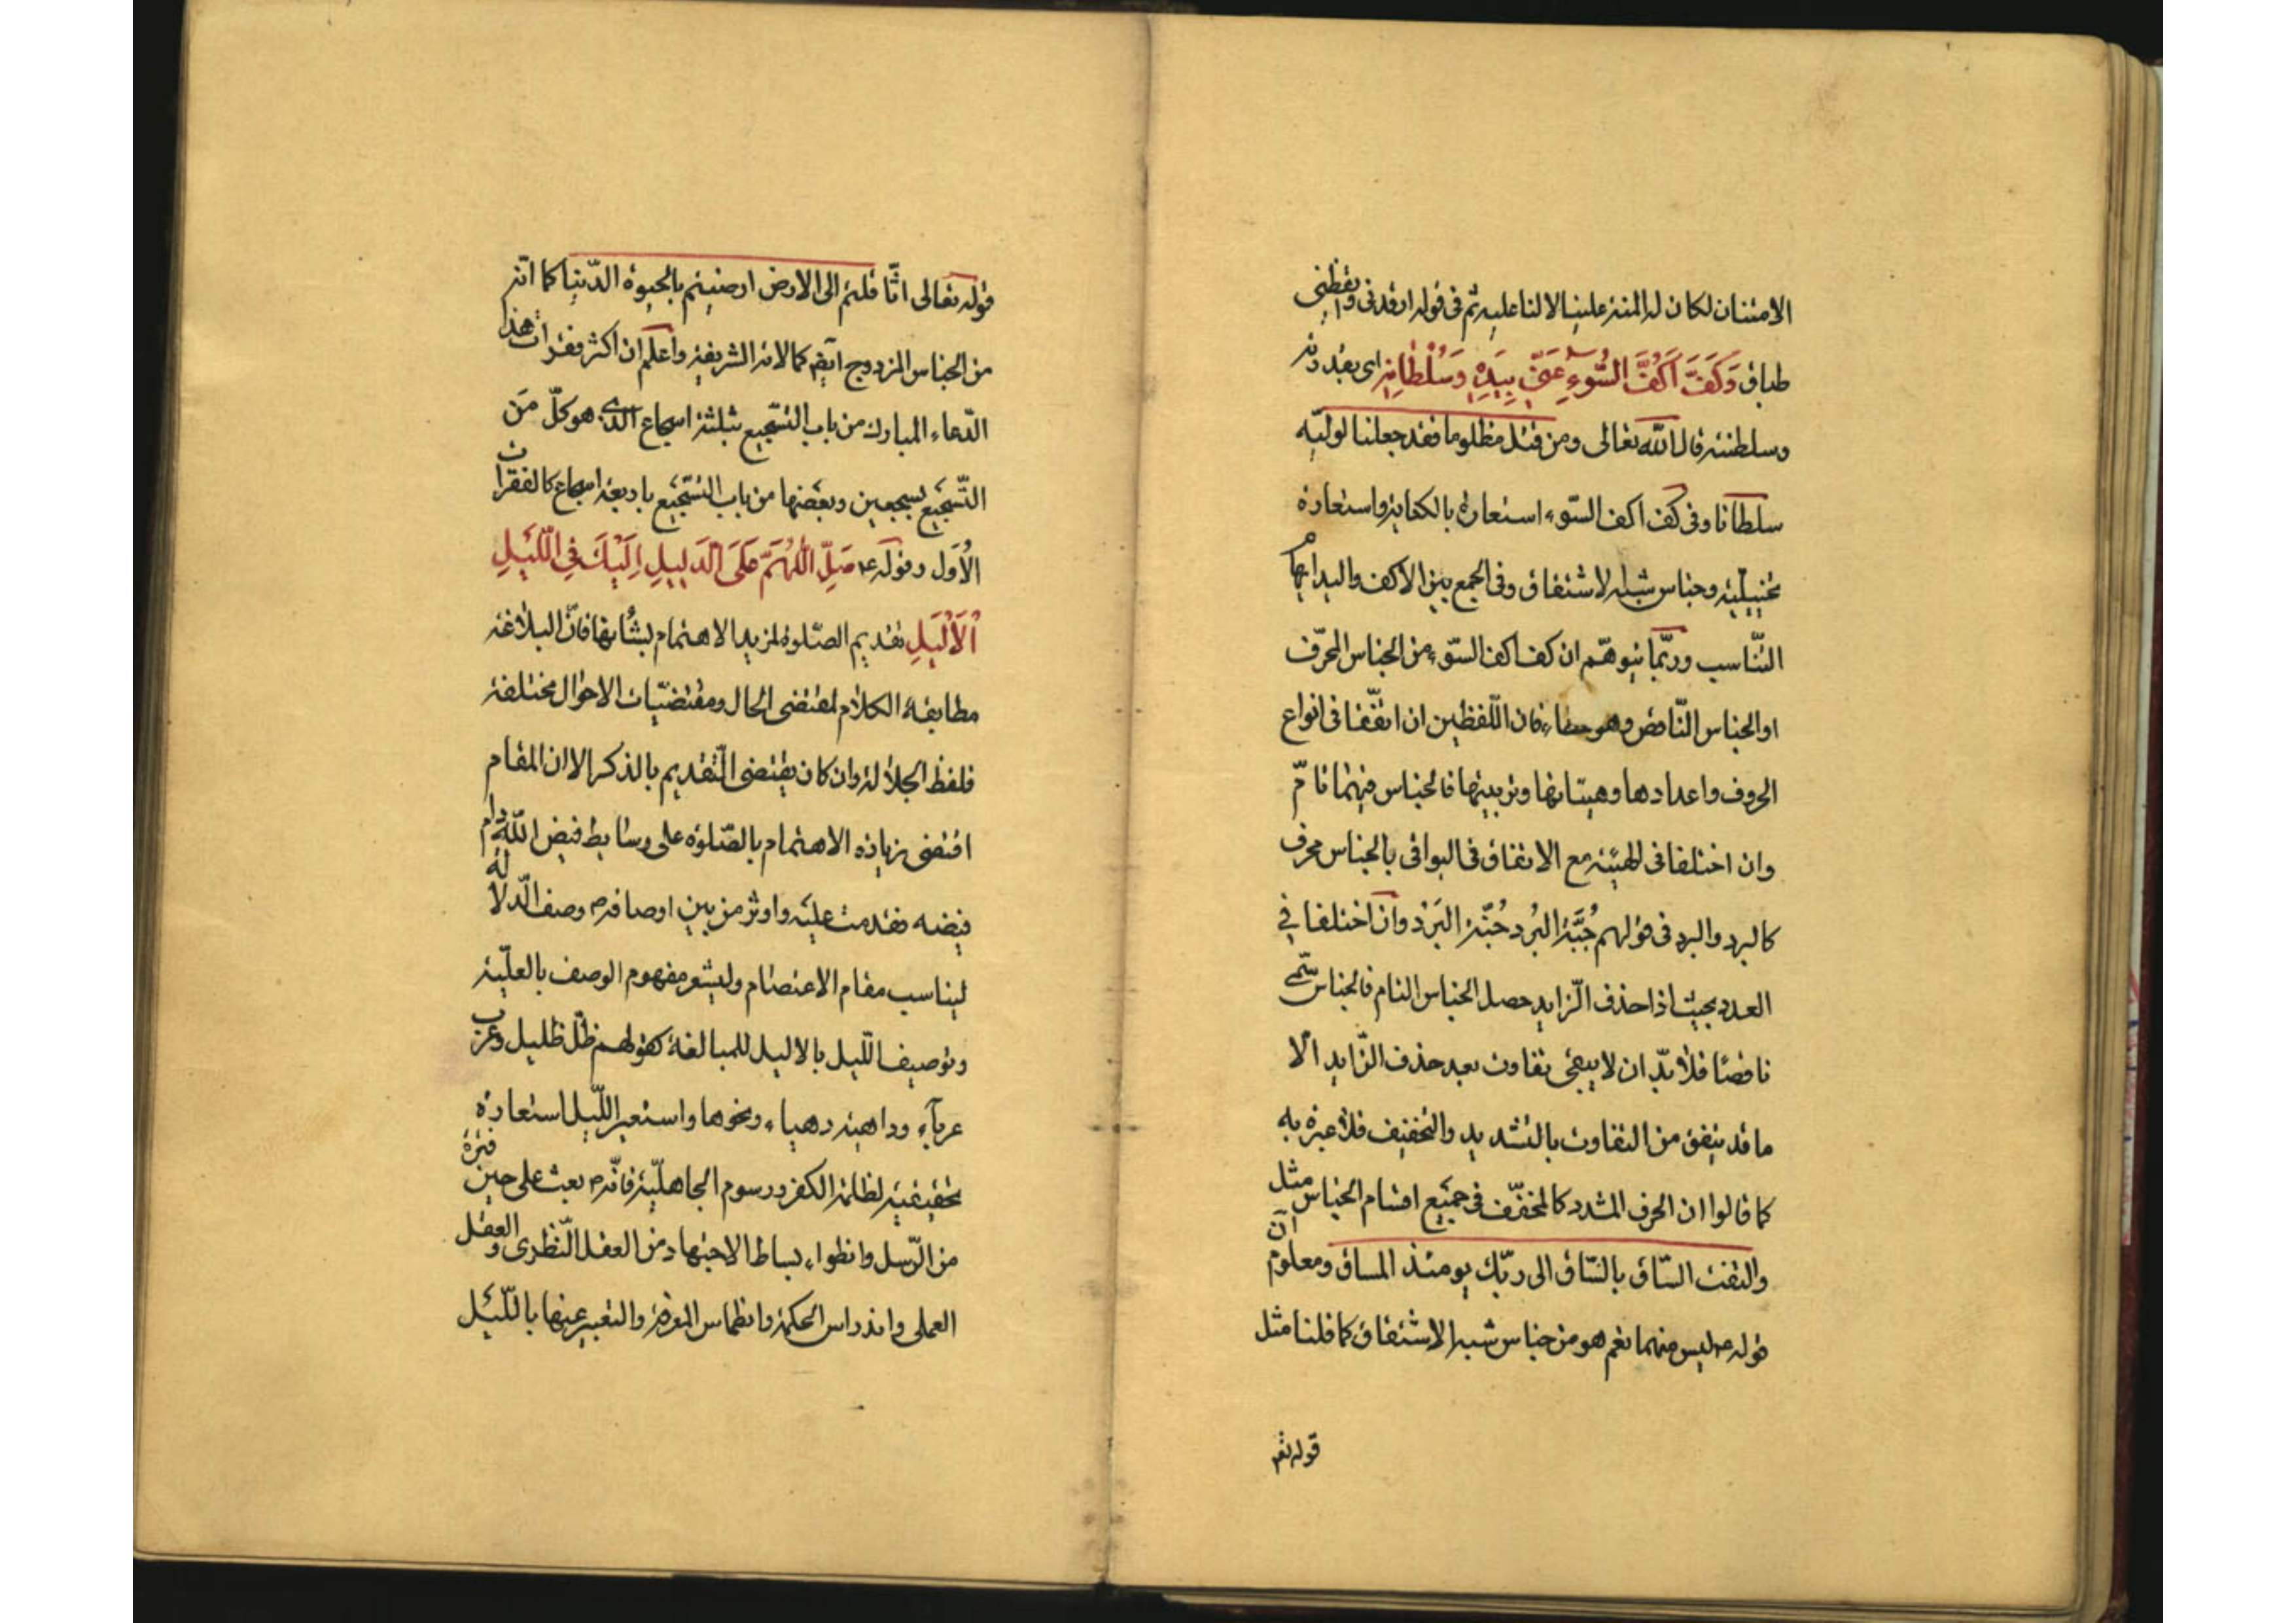 الامتنان لكان له المنة علينا لا لنا عليه ثم فى قوله ارقدنى وايقظنى
طباق وَكَفَّ اَكُفَّ السُّوءِ عَنّى بِيَدِهِ وَسُلْطانِهِ اى بقدرته
وسلطنته قال الله تعالى ومن قتل مظلوما فقد جعلنا لوليّه
سلطانا وفى كف اكف السّوء استعارة بالكناية واستعارة
تخييليّة وجناس شبه الاشتقاق وفى الجمع بين الاكف واليد ايهام
التّناسب وربّما يتوهّم ان كف اكف السّوء من الجناس المحرّف
او الجناس النّاقص وهو خطاء فان اللّفظين ان اتّفقا فى انواع
الحروف واعدادها وهيئاتها وترتيبها فالجناس فيهما تامّ
وان اختلفا فى الهيئة مع الاتفاق فى البواقى بالجناس محرف
كالبرد والبرد فى قولهم جُبَّة البُرد جُنّة البَرْد وان اختلفا في
العدد بحيث اذا حذف الزّايد حصل الجناس التام فالجناس سمّى
ناقصًا فلا بدّ ان لا يبقى تفاوت بعد حذف الزّايد الّا
ما قد يتفق من التفاوت بالتشديد والتخفيف فلا عبرة به
كما قالوا ان الحرف المشدد كالمخفّف فى جميع اقسام الجناس مثل
والتفت السّاق بالسّاق الى ربّك يومئذ المساق ومعلوم انّ
قوله ع ليس منهما نعم هو من جناس شبه الاشتقاق كما قلنا مثل
قوله تعم
قوله تعالى اثّاقلتم الى الارض ارضيتم بالحيوة الدّنيا كما انّه
من الجناس المزدوج ايضم كالاية الشريفة واعلم ان اكثر فقرات هذا
الدّعاء المبارك من باب التسّجيع بثلثة اسجاع الذى هو كلّ من
التّسجيع بسجعين وبعضها من باب التسّجيع باربعة اسجاع كالفقرات
الاُول وقوله ع صَلِّ اللّهُمَّ عَلَى الدَّليلِ اِلَيْكَ فِى اللَّيْلِ
اْلاَلْيَلِ تقديم الصّلوة لمزيد الاهتمام بشُانها فانّ البلاغة
مطابقة الكلام لمقتضى الحال ومقتضيّات الاحوال مختلفة
فلفظ الجلالة وان كان يقتضى التّقديم بالذكر الا ان المقام
اقتضى زيادة الاهتمام بالصّلوة على وسايط فيض اللّه دام
فيضه فقدمت عليه واوثر من بين اوصافه ص وصف الدّلالة له
ليناسب مقام الاعتصام وليشعر مفهوم الوصف بالعلّيّة
وتوصيف اللّيل بالاليل للمبالغة كقولهم ظلّ ظليل وعرب
عرباء وداهية دهياء ونحوها واستعير اللّيل استعارة
تحقيقية لظلمة الكفر ورسوم الجاهليّة فانّه ص بعث على حين فترة
من الرّسل وانطواء بساط الاجتهاد من العقل النّظرى والعقل
العملى واندراس الحكمة وانطماس المعرفة والتعبير عنها باللّيل